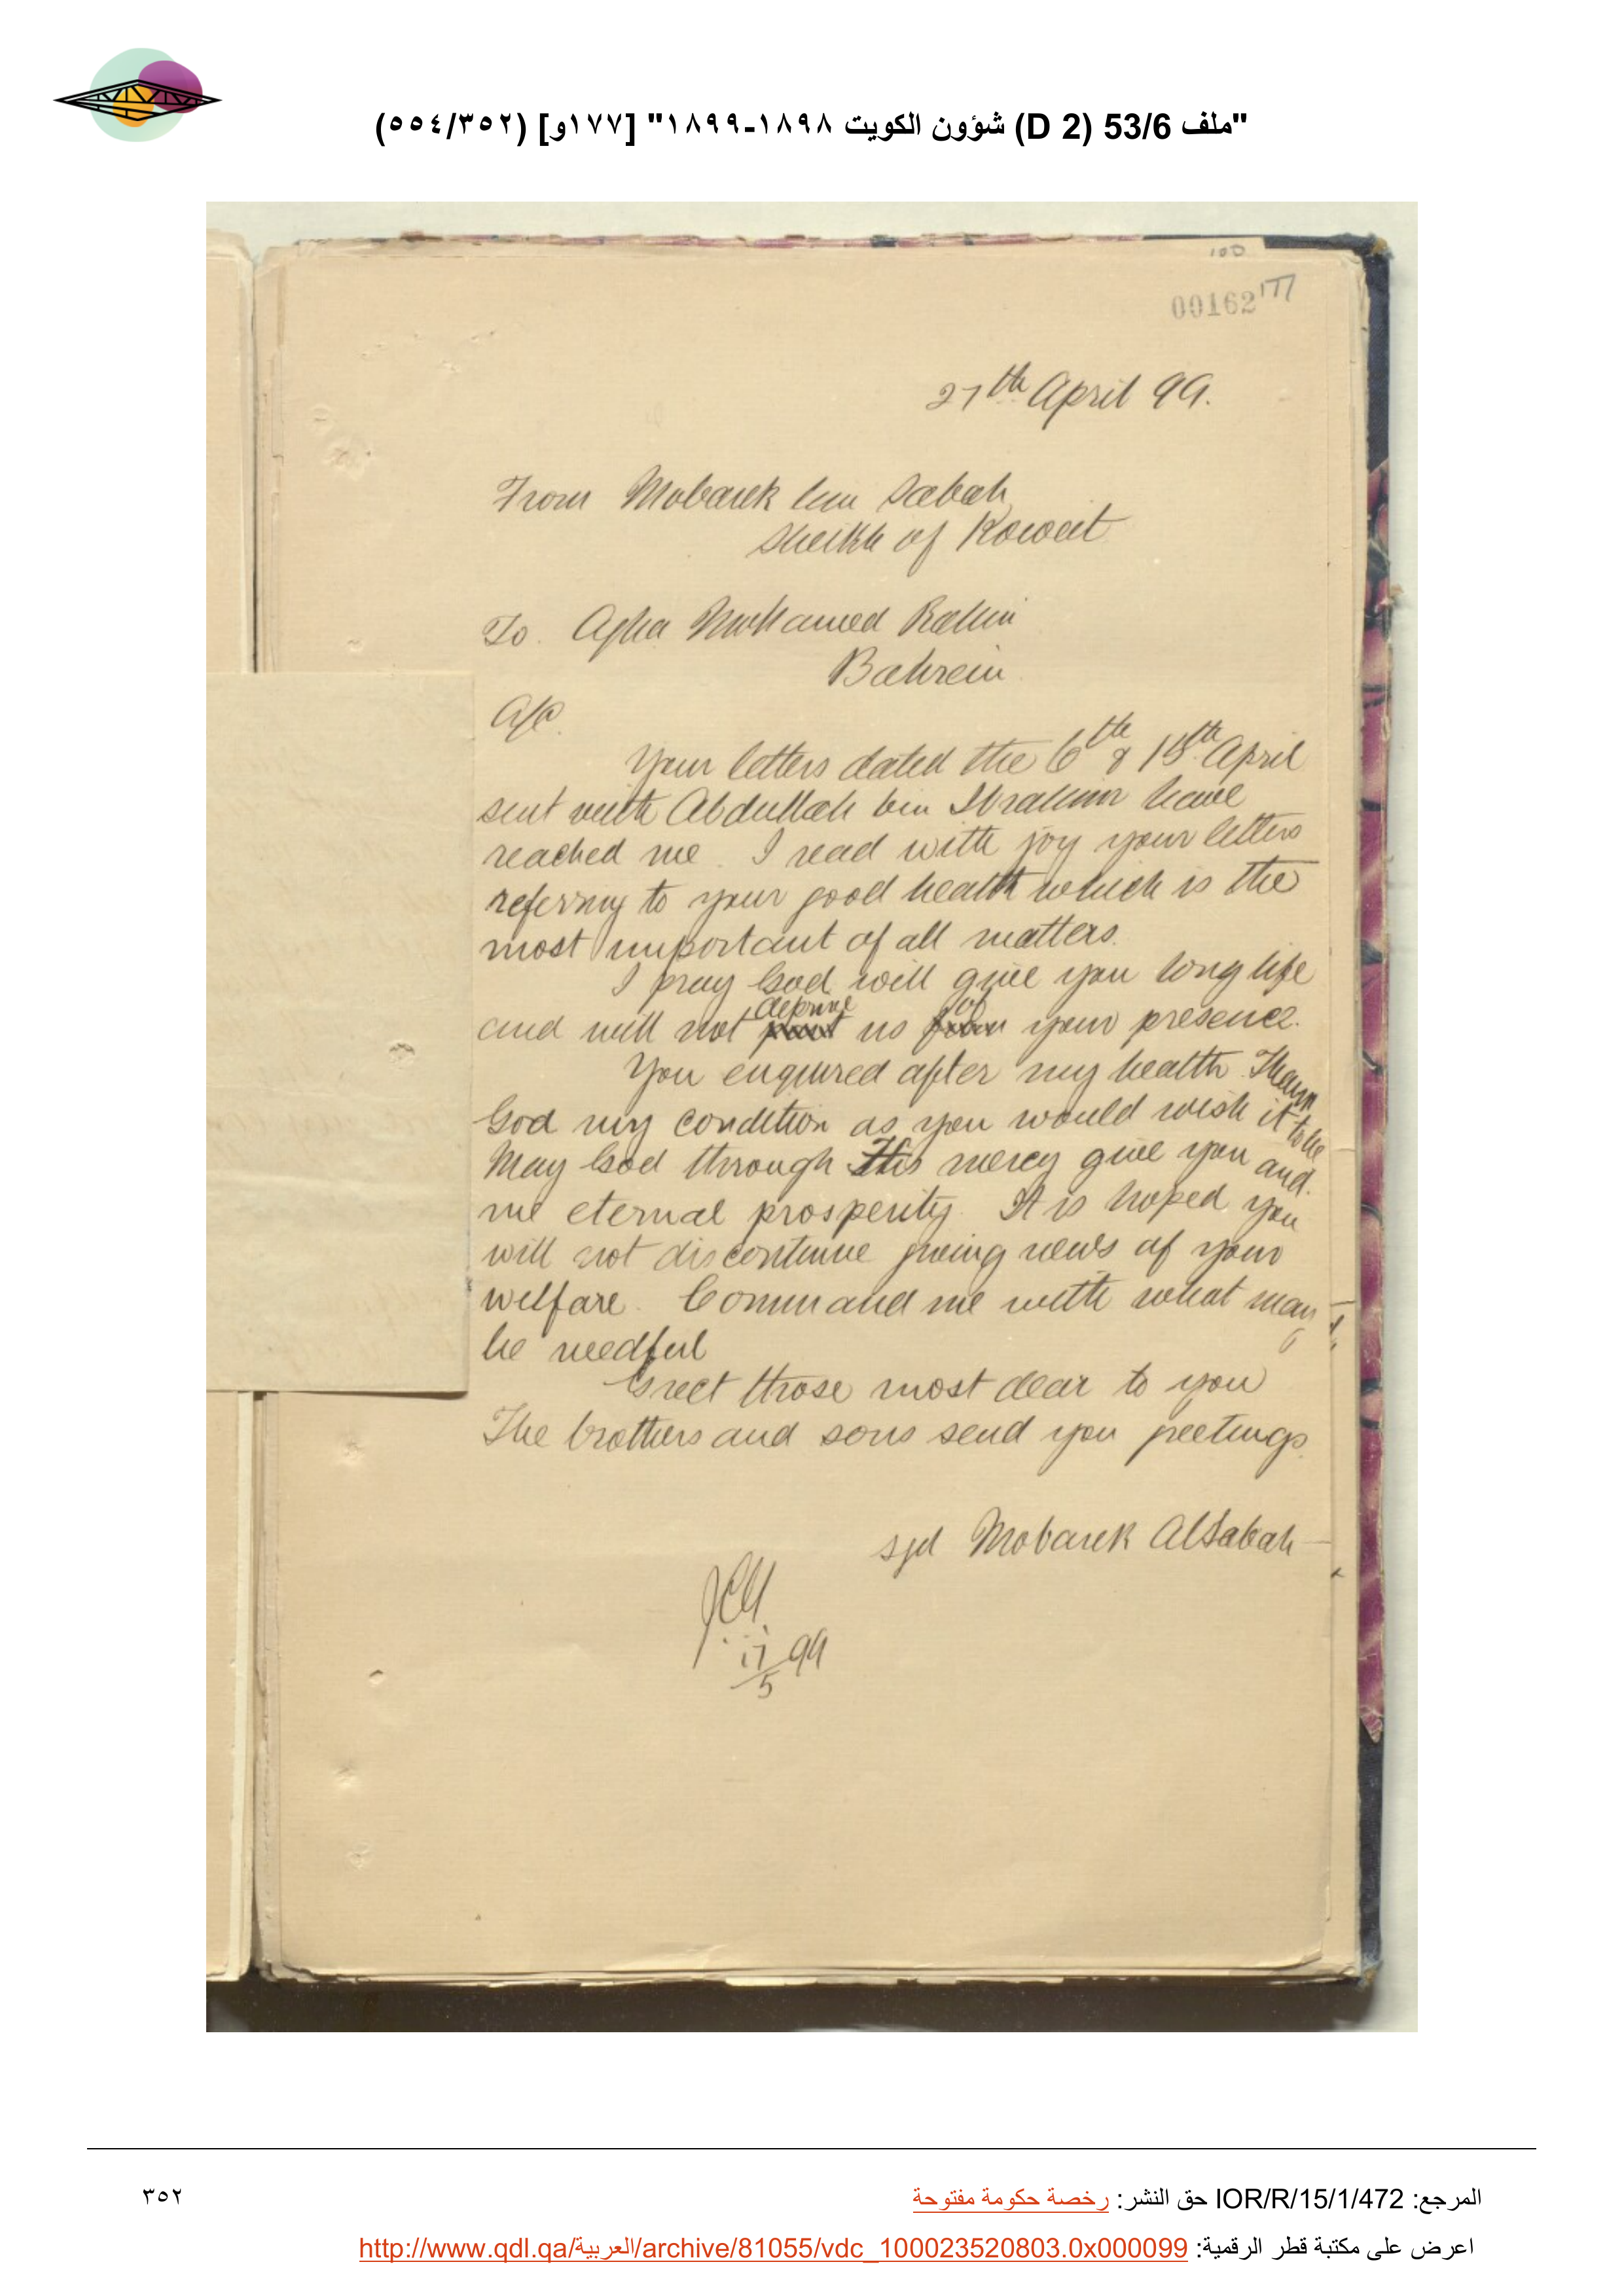 "ملف 53/6 (D 2) شؤون الكويت ١٨٩٨-١٨٩٩" [١٧٧و] (٥٥٤/٣٥٢)
00162 177
27th April 99.
From Mobarek bin Sabah
Sheikh of Koweit
To. Agha Mohamed Rahim
Bahrein
A/C
Your letters dated the 6th & 15th April
sent with Abdullah bin Ibrahim have
reached me. I read with joy your letters
referring to your good health which is the
most important of all matters.
I pray God will give you long life
and will not deprive us of your presence.
You enquired after my health. Thank
God my condition as you would wish it to be
May God through His mercy give you and
me eternal prosperity. It is hoped you
will not discontinue giving news of your
welfare. Command me with what may
be needful
Greet those most dear to you
The brothers and sons send you greetings.
sgd Mobarek AlSabah
17/5 99
المرجع: IOR/R/15/1/472 حق النشر: رخصة حكومة مفتوحة
٣٥٢
اعرض على مكتبة قطر الرقمية: http://www.qdl.qa/العربية/archive/81055/vdc_100023520803.0x000099